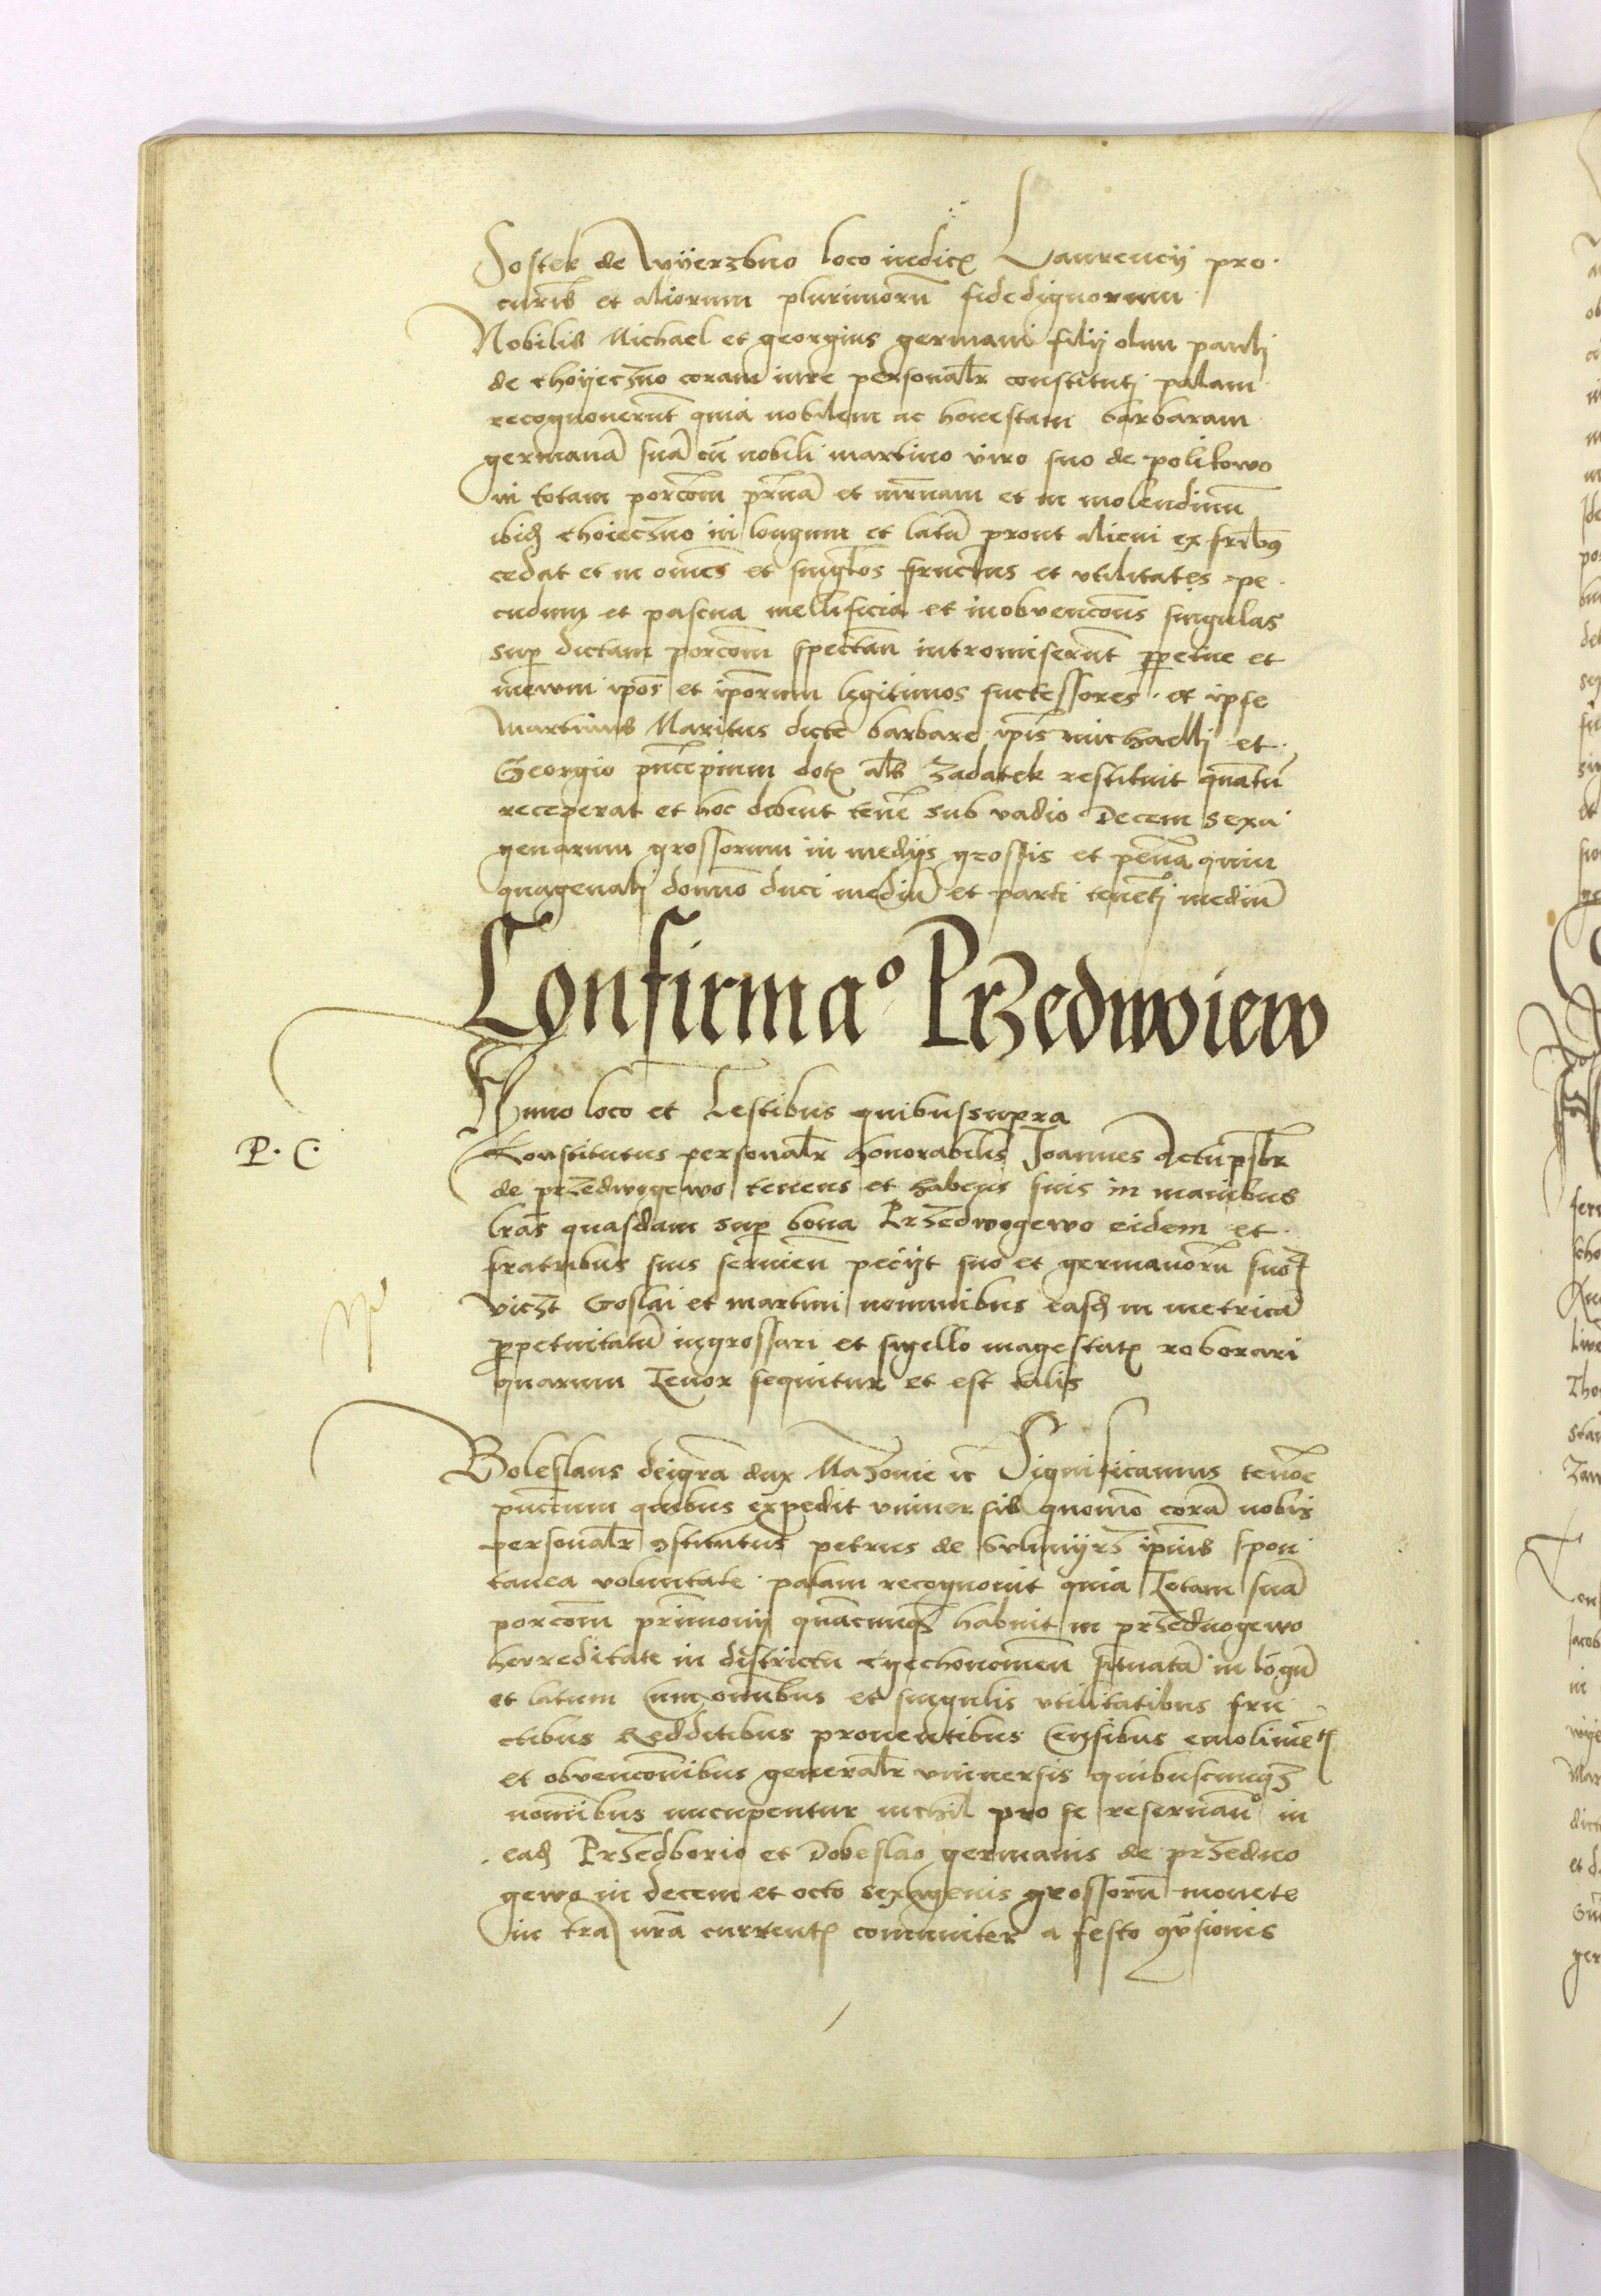 Jostek de Wyerzbno loco iudicꝭ Laurencij pro
curẽis et aliorum plurimorũ fidedignorum
Nobilis Michael et georgius germani filij olim pauli
de choyeczno coram iure personalr̃ constituti palam
recognouerũt quia nobilem ac honestam barbaram
germanã suã cũ nobili martino viro suo de politowo
in totam porcõm pr̃nã et mr̃nam et in molendinũ
ibiđ choieczno in longum et latũ prout alicui ex frib9
cedat et in om̃es et singl̃os fructus et vtilitates pe
cudum et pascua mellificia et inobvencõns singulas
sup dictam porcõm spectan̄ intromiserũt ppetue et
in ewm ip̃os et ip̃orum legitimos successores et ipse
martinus Maritus dicte barbare ip̃is michaelli et
Georgio pncĩpium dotꝭ al̃s zadatek restituit quãtũ
receperat et hoc debent tenẽ sub vadio Decem sexa
genarum grossorum in medijs grossis et pena quin
quagenali domño duci mediũ et parti tenẽti mediũ
Confirmaº Przedwoiew
Anno loco et Testibus quibussupra
P. C.
Constitutus personalr̃ honorabilis Joannes Actu psbr̃
de przedwogewo tenens et habens suis in manibus
lr̃as quasdam sup bona Przedwogewo eidem et
fratribus suis seruien̄ pecijt suo et germanorũ suoꝝ
viczt Goslai et martini nominibus easđ in metricã
ppetuitatũ ingrossari et sigello magestatꝭ roborari
quarum Tenor sequitur et est talis
Boleslaus deigr̃a dux Mazouie ꝛc̃ Significamus tenõe
pñcium quibus expedit vniuersis quomõ corã nobis
personalr̃ ꝯstitutus petrus de ip̃ius spon
tanea voluntate palam recognouit quia Totam suã
porcõm pr̃imonij quãcumqʒ habuit in przedwogewo
herreditate in districtu Cyechonomen̄ situatã in lõgũ
et latum cum om̃ibus et singulis vtilitatibus fru
ctibus Redditibus prouentibus Censibus emolimẽtꝭ
et obvencõnibus generalr̃ vniuersis quibuscumqʒ
nomĩbus nuncupentur nichil pro se reseruanº in
eađ Przedborio et Dobeslao germanis de przedwo
gewo in decem et octo sexagenis grossorũ monete
in tra nr̃a currentꝭ comuniter a festo ꝯṽsionis